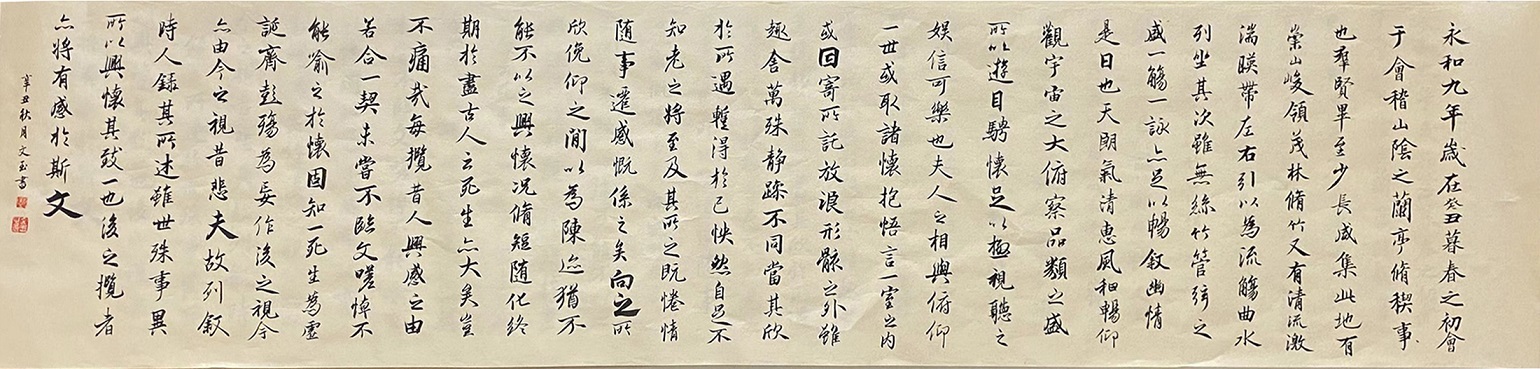 永和九年歲在癸丑暮春之初會
于會稽山陰之蘭亭脩稧事
也羣賢畢至少長咸集此地有
崇山峻領茂林脩竹又有清流激
湍暎帶左右引以為流觴曲水
列坐其次雖無絲竹管弦之
盛一觴一詠亦足以暢叙幽情
是日也天朗氣清惠風和暢仰
觀宇宙之大俯察品類之盛
所以遊目騁懷足以極視聽之
娛信可樂也夫人之相與俯仰
一世或取諸懷抱悟言一室之內
或因寄所託放浪形骸之外雖
趣舍萬殊靜躁不同當其欣
於所遇暫得於己怏然自足不
知老之將至及其所之既惓情
隨事遷感慨係之矣向之所
欣俛仰之閒以為陳迹猶不
能不以之興懷况脩短隨化終
期於盡古人云死生亦大矣豈
不痛哉每攬昔人興感之由
若合一契未嘗不臨文嗟悼不
能喻之於懷固知一死生為虛
誕齊彭殤為妄作後之視今
亦由今之視昔悲夫故列叙
時人錄其所述雖世殊事異
所以興懷其致一也後之攬者
亦將有感於斯文
辛丑秋月文玉書